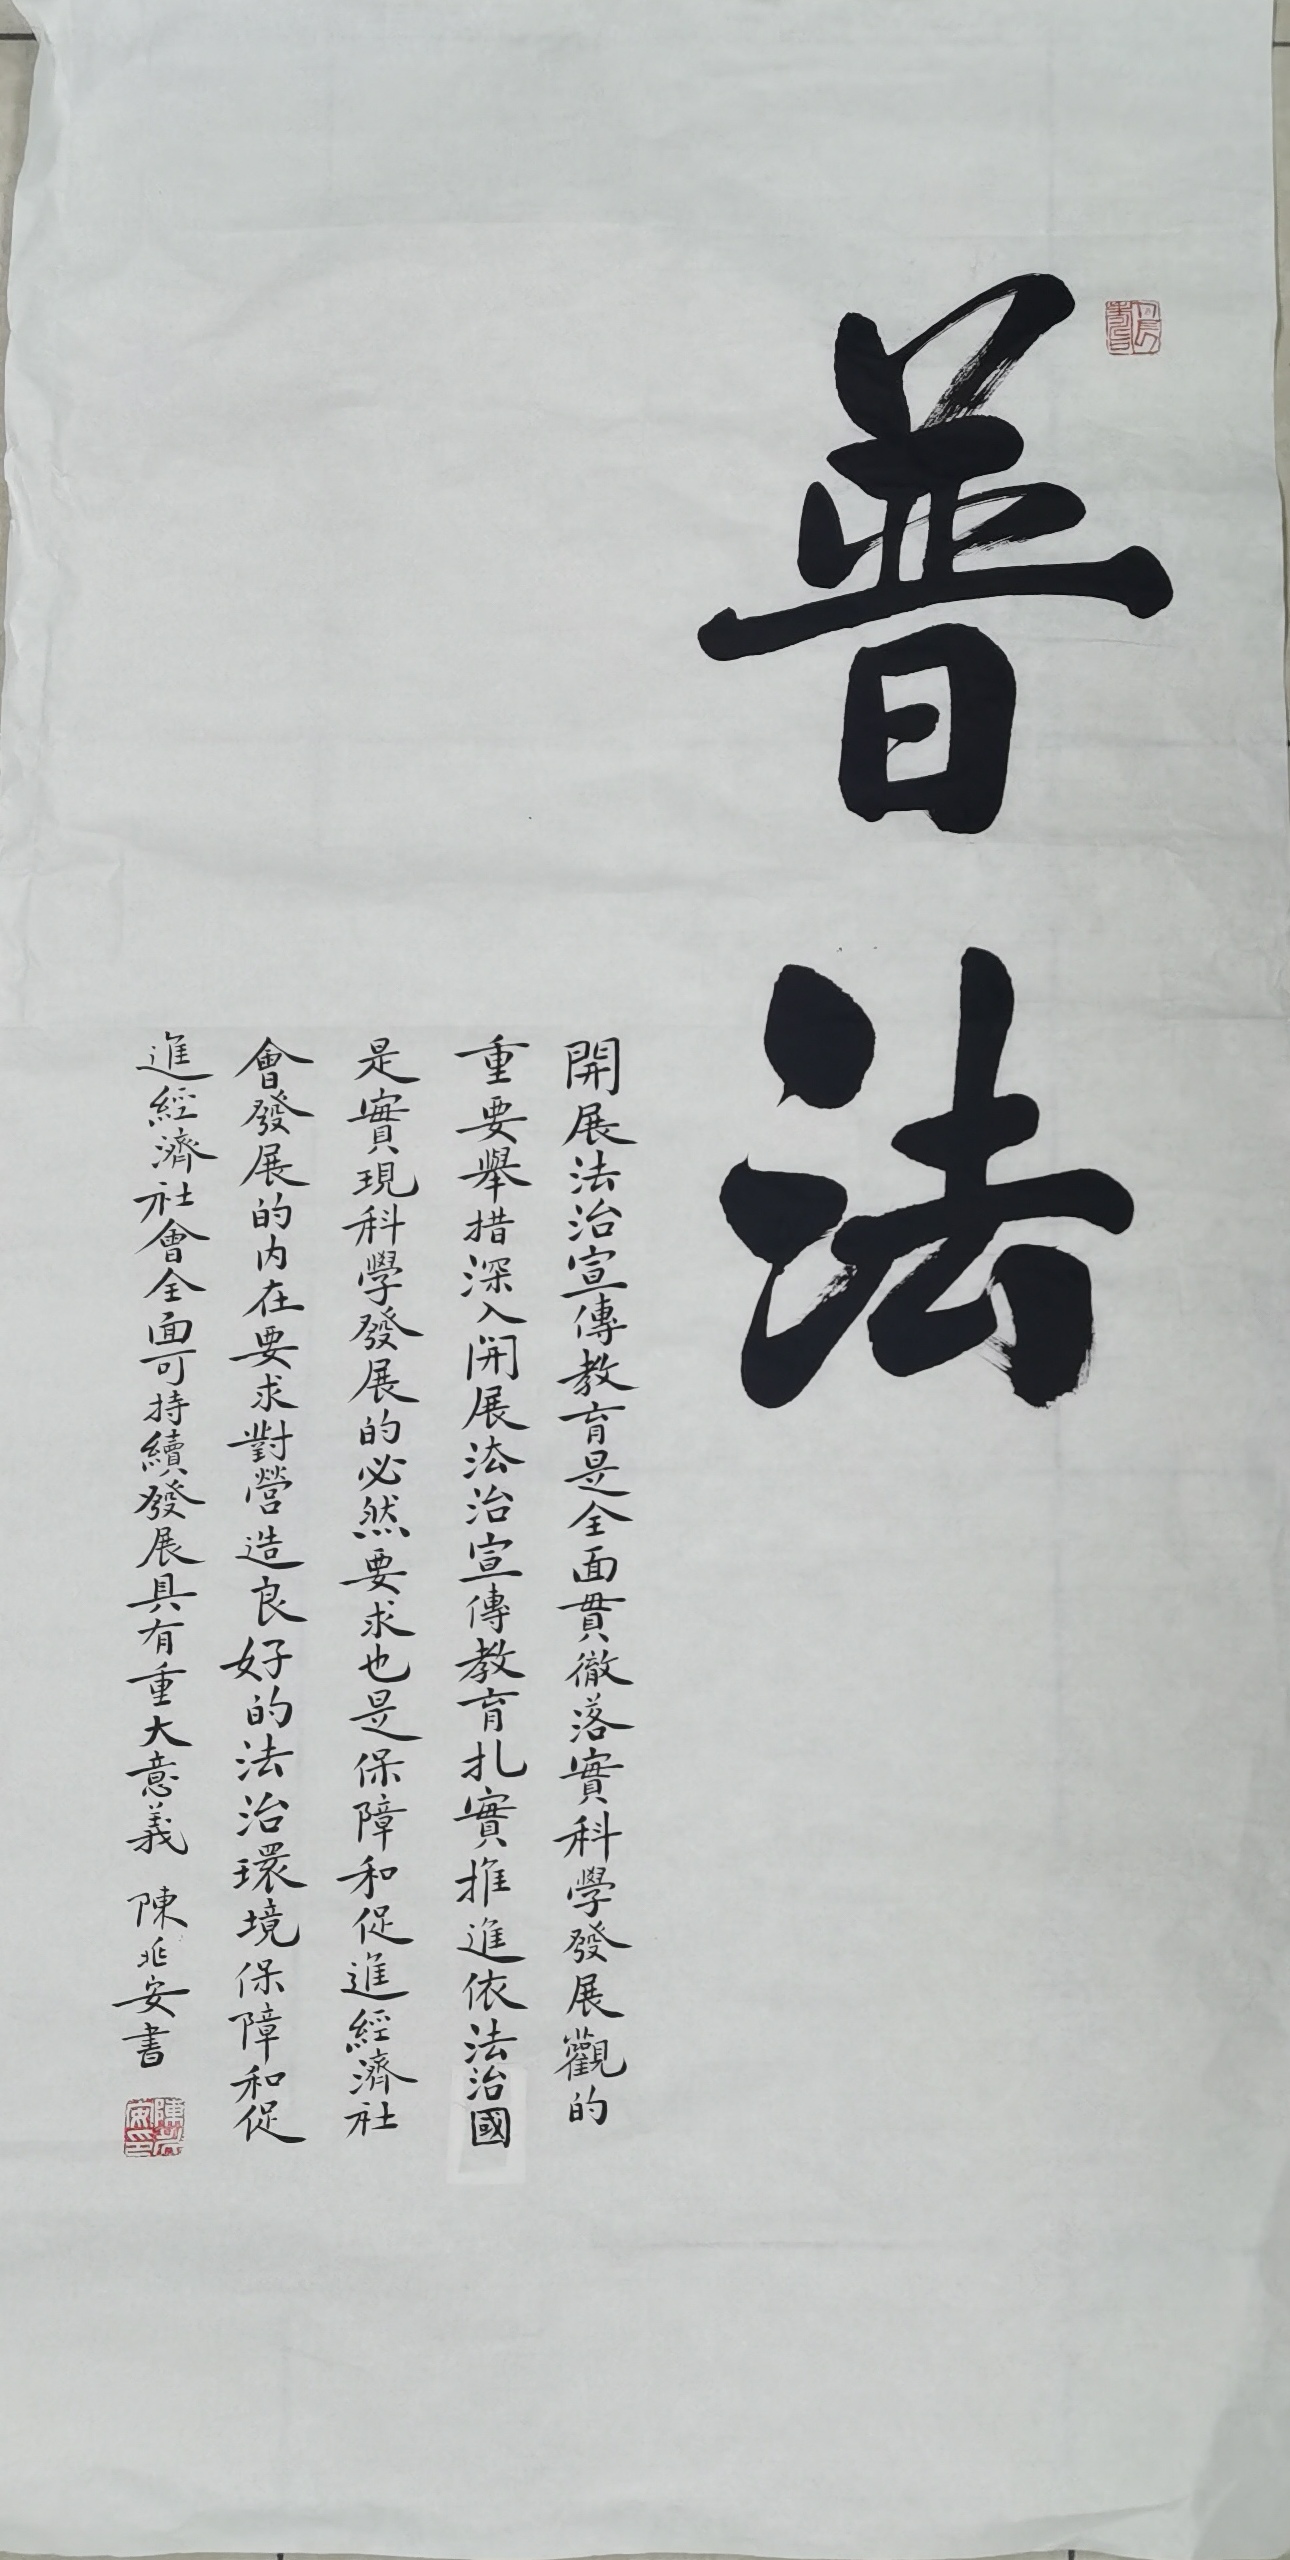 普法
開展法治宣傳教育是全面貫徹落實科學發展觀的
重要舉措深入開展法治宣傳教育扎實推進依法治國
是實現科學發展的必然要求也是保障和促進經濟社
會發展的内在要求對營造良好的法治環境保障和促
進經濟社會全面可持續發展具有重大意義 陳兆安書